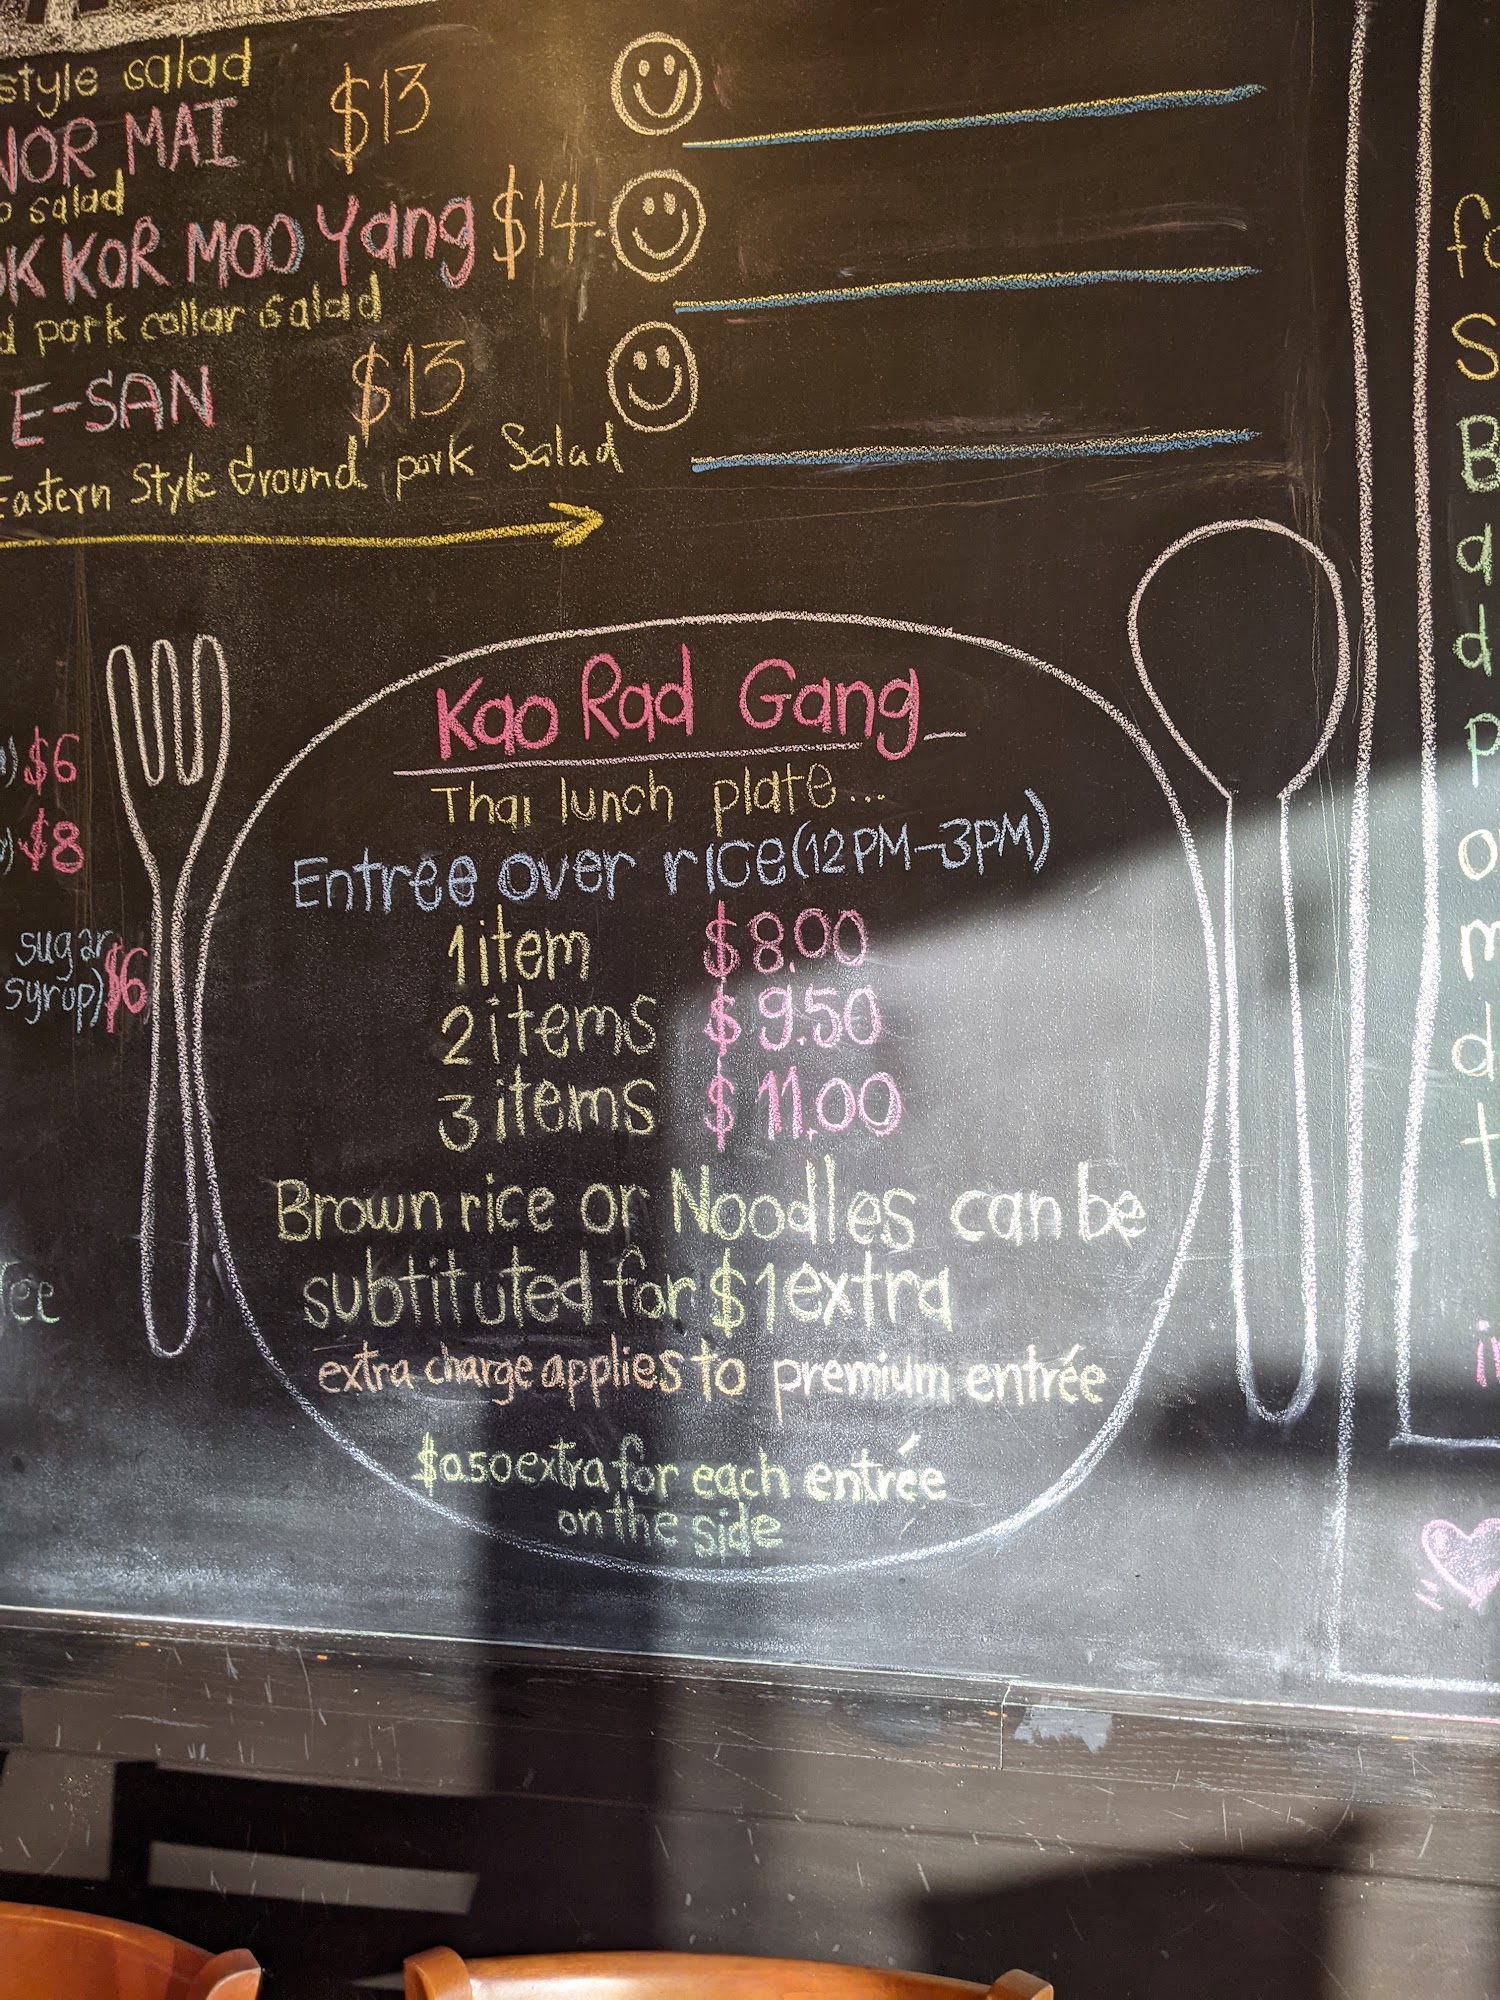 style salad
NOR MAI $13
salad
KOR MOO Yang $14.
pork collar salad
E-SAN $13
Eastern Style Ground pork Salad
$6
$8
sugar
syrup) $6
Kao Rad Gang
Thai lunch plate...
Entree over rice (12PM-3PM)
1 item $8.00
2 items $9.50
3 items $11.00
Brown rice or Noodles can be
subtituted for $1 extra
extra charge applies to premium entrée
$0.50 extra for each entrée
on the side